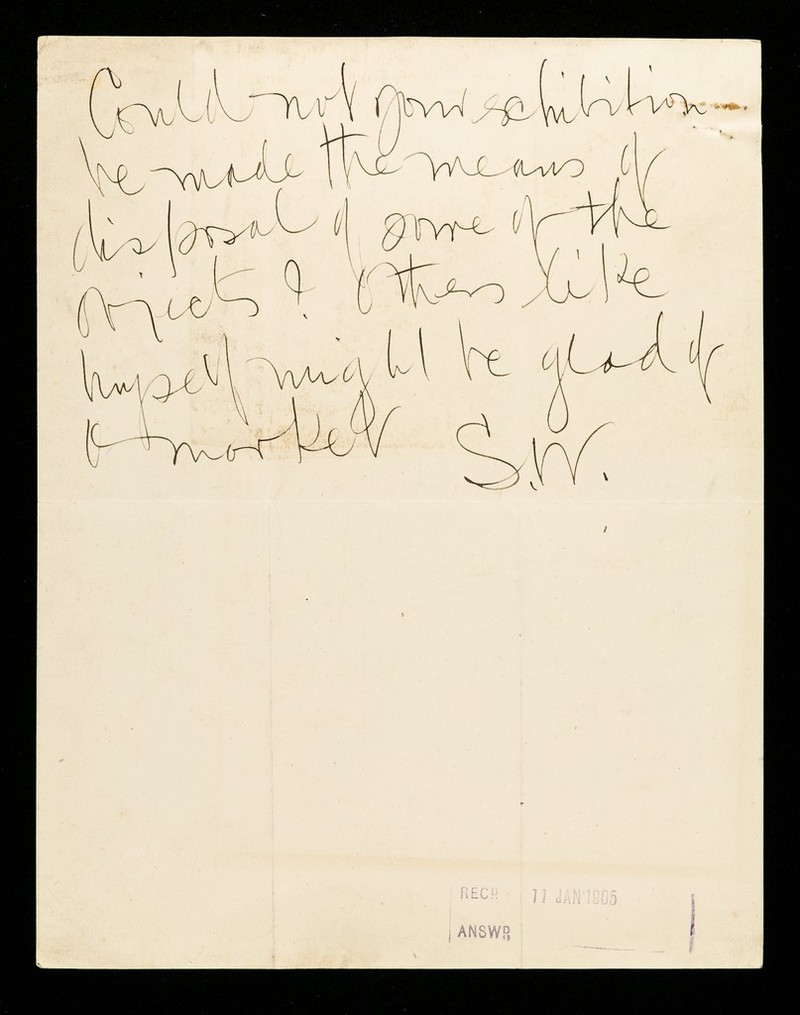 Could not your exhibition
be made the means of
disposal of some of the
objects? Others like
myself might be glad of
a market S.W.
RECD 11 JAN 1905
ANSWD